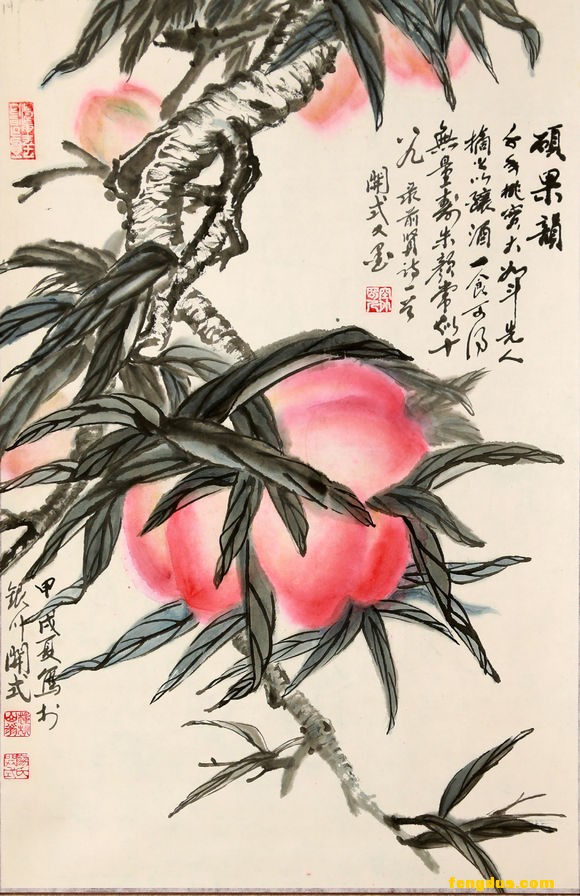 碩果韻
千年桃實大如斗先人
摘之以釀酒一食可得
無量壽朱顏常似十
八九 录前賢詩一首
開式又墨
甲戌夏寫於
銀川開式
fangduo.com